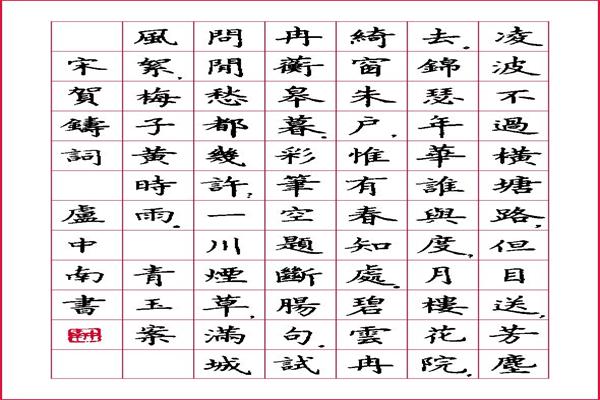 凌波不過橫塘路,但目送,芳塵
去。錦瑟年華誰與度,月樓花院,
綺窗朱户,惟有春知處。碧雲冉
冉蘅皋暮。彩筆空題斷腸句。試
問閒愁都幾許,一川煙草,滿城
風絮,梅子黃時雨。 青玉案
宋賀鑄詞 盧中南書